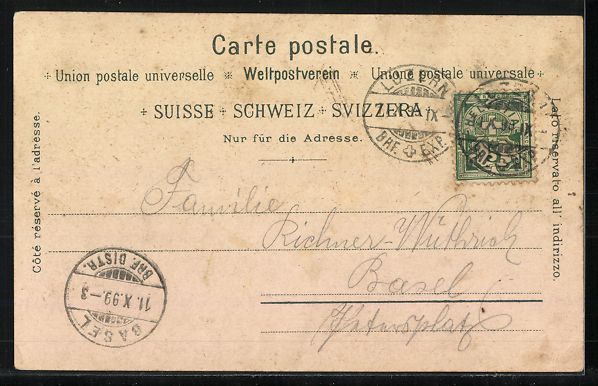 Carte postale.
Union postale universelle ✻ Weltpostverein ✻ Unione postale universale
SUISSE + SCHWEIZ + SVIZZERA
Nur für die Adresse.
Côté réservé à l'adresse.
Lato riservato all' indirizzo.
LUZERN
IX
BRF. EXP.
Familie
Richner-Wüthrich
Basel
Petersplatz
BRF. DISTR.
11.X.99.-3
BASEL